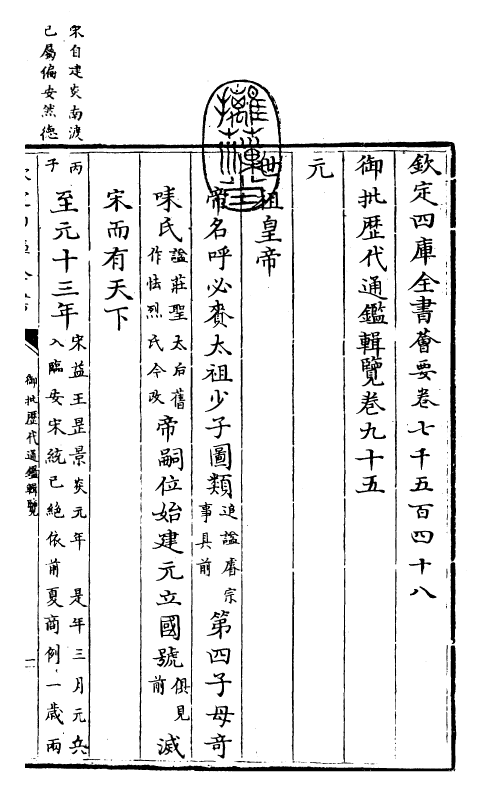 欽定四庫全書薈要卷七千五百四十八
御批歷代通鑑輯覽卷九十五
元
世祖皇帝
帝名呼必賚太祖少子圖類追諡睿宗事具前第四子母奇
味氏諡莊聖太后舊作怯烈氏今改帝嗣位始建元立國號俱見前滅
宋而有天下
丙子
至元十三年宋益王昰景炎元年 是年三月元兵入臨安宋統已絕依前夏商例一歲兩
宋自建炎南渡
已屬偏安然德
御批歷代通鑑輯覽
一